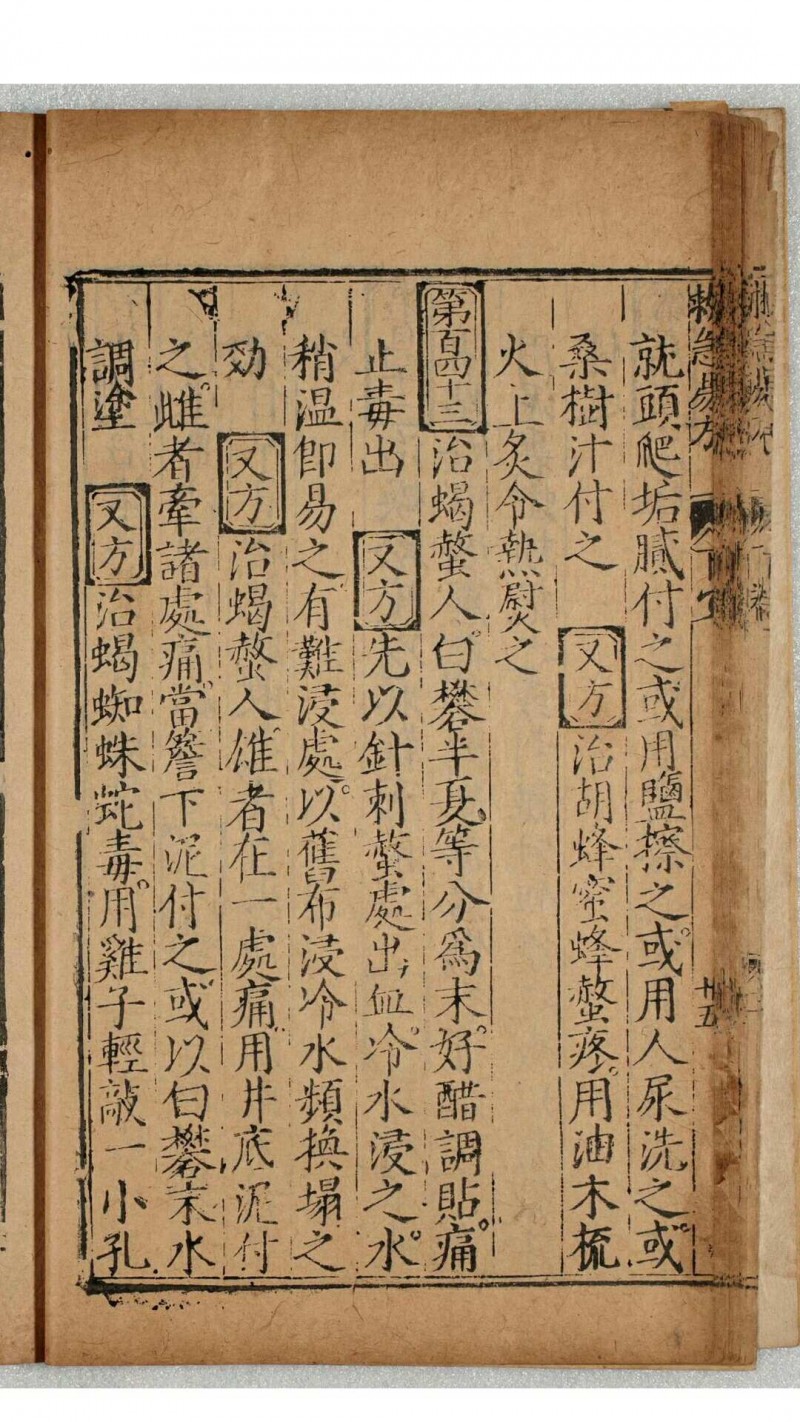 救急易方
廿五
就頭爬垢膩付之或用鹽擦之。或用人尿洗之或
桑樹汁付之 又方 治胡蜂蜜蜂螫疼。用油木梳
火上炙令熱熨之
第百四十三 治蝎螫人。白礬半夏等分爲末。好醋調貼痛。
止毒出 又方 先以針刺螫處出血。冷水浸之。水
稍温即易之。有難浸處。以舊布浸冷水頻換塌之
効 又方 治蝎螫人。雄者在一處痛。用井底泥付
之。雌者牽諸處痛。當簷下泥付之。或以白礬末水
調塗 又方 治蝎蜘蛛蛇毒。用雞子輕敲一小孔